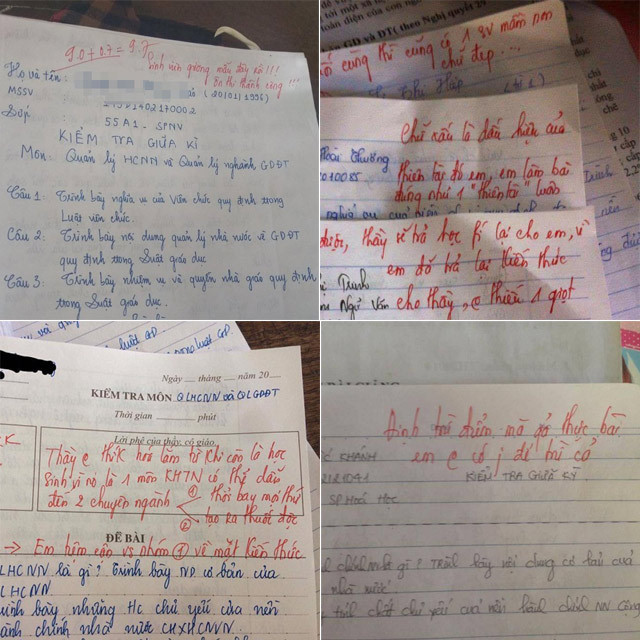 9.0 + 0.7 = 9.7
Sinh viên gương mẫu đây rồi!!!
Họ và tên:
(20/01/1996)
MSSV
Lớp:
55A1 - SPNV
KIỂM TRA GIỮA KÌ
Môn: Quản lý HCNN và Quản lý nghành GDĐT
Câu 1: Trình bày nghĩa vụ của Viên chức quy định trong
Luật viên chức.
Câu 2: Trình bày nội dung quản lý nhà nước về GDĐT
quy định trong Luật giáo dục
Câu 3: Trình bày nhiệm vụ và quyền nhà giáo quy định
trong Luật giáo dục.
GD và ĐT (theo Nghị quyết 29
cùng thì cũng có 1 SV mầm non
chữ đẹp...
Chữ xấu là dấu hiệu của
Hoài Thương
thiên tài đó em, em làm bài
đúng như 1 "thiên tài" luôn
thầy sẽ trả học fí lại cho em, vì
em đã trả lại kiến thức
Trinh
Ngữ Văn
cho thầy, e thiếu 1 giọt
Ngày __ tháng __ năm 20__
KIỂM TRA MÔN QLHCNN và QLGDĐT
Thời gian __ phút
Lời phê của thầy, cô giáo
Thầy e thik hoá lắm từ khi còn là học
sinh vì nó là 1 môn KHTN có thể dẫn
đến 2 chuyên ngành
① thổi bay mọi thứ
② tạo ra thuốc độc
ĐỀ BÀI
→ Em tiệm cận vs nhóm ① về mặt kiến thức
LHCNN là gì? Trình bày ND cơ bản của
LHCNN
bày những HC chủ yếu của nền
hành chính nhà nước CHXHCNVN.
Định trừ điểm mà gở thực bài
em e có j để trừ cả
KHÁNH
KIỂM TRA GIỮA KỲ
SP Hoá Học
gì? Trình bày nội dung cơ bản của
nhà nước.
chất chủ yếu của nền hành chính NN cộng